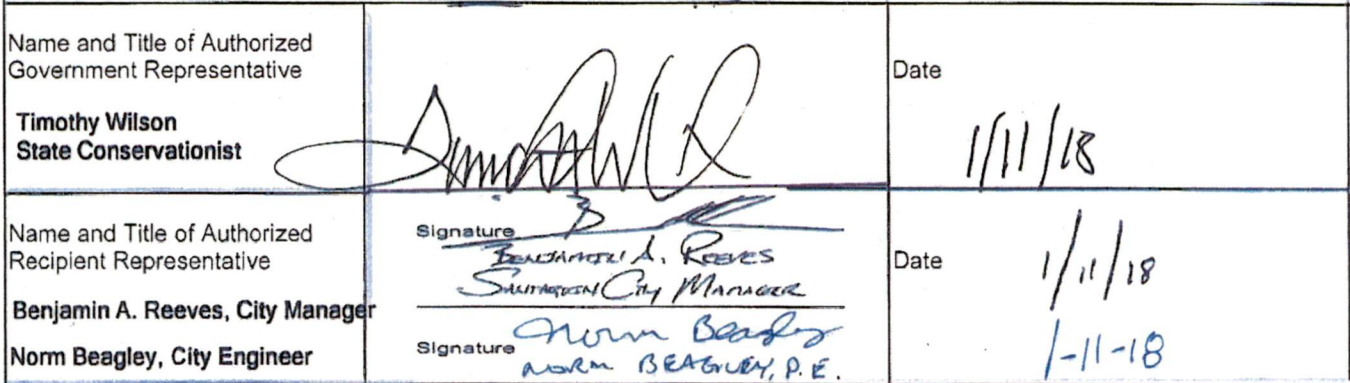 Name and Title of Authorized
Government Representative
Timothy Wilson
State Conservationist
Timothy Wil
Date
1/11/18
Name and Title of Authorized
Recipient Representative
Benjamin A. Reeves, City Manager
Norm Beagley, City Engineer
Signature
BENJAMIN A. REEVES
SANTAQUIN City MANAGER
Signature Norm Beagley
NORM BEAGLEY, P.E.
Date
1/11/18
1-11-18